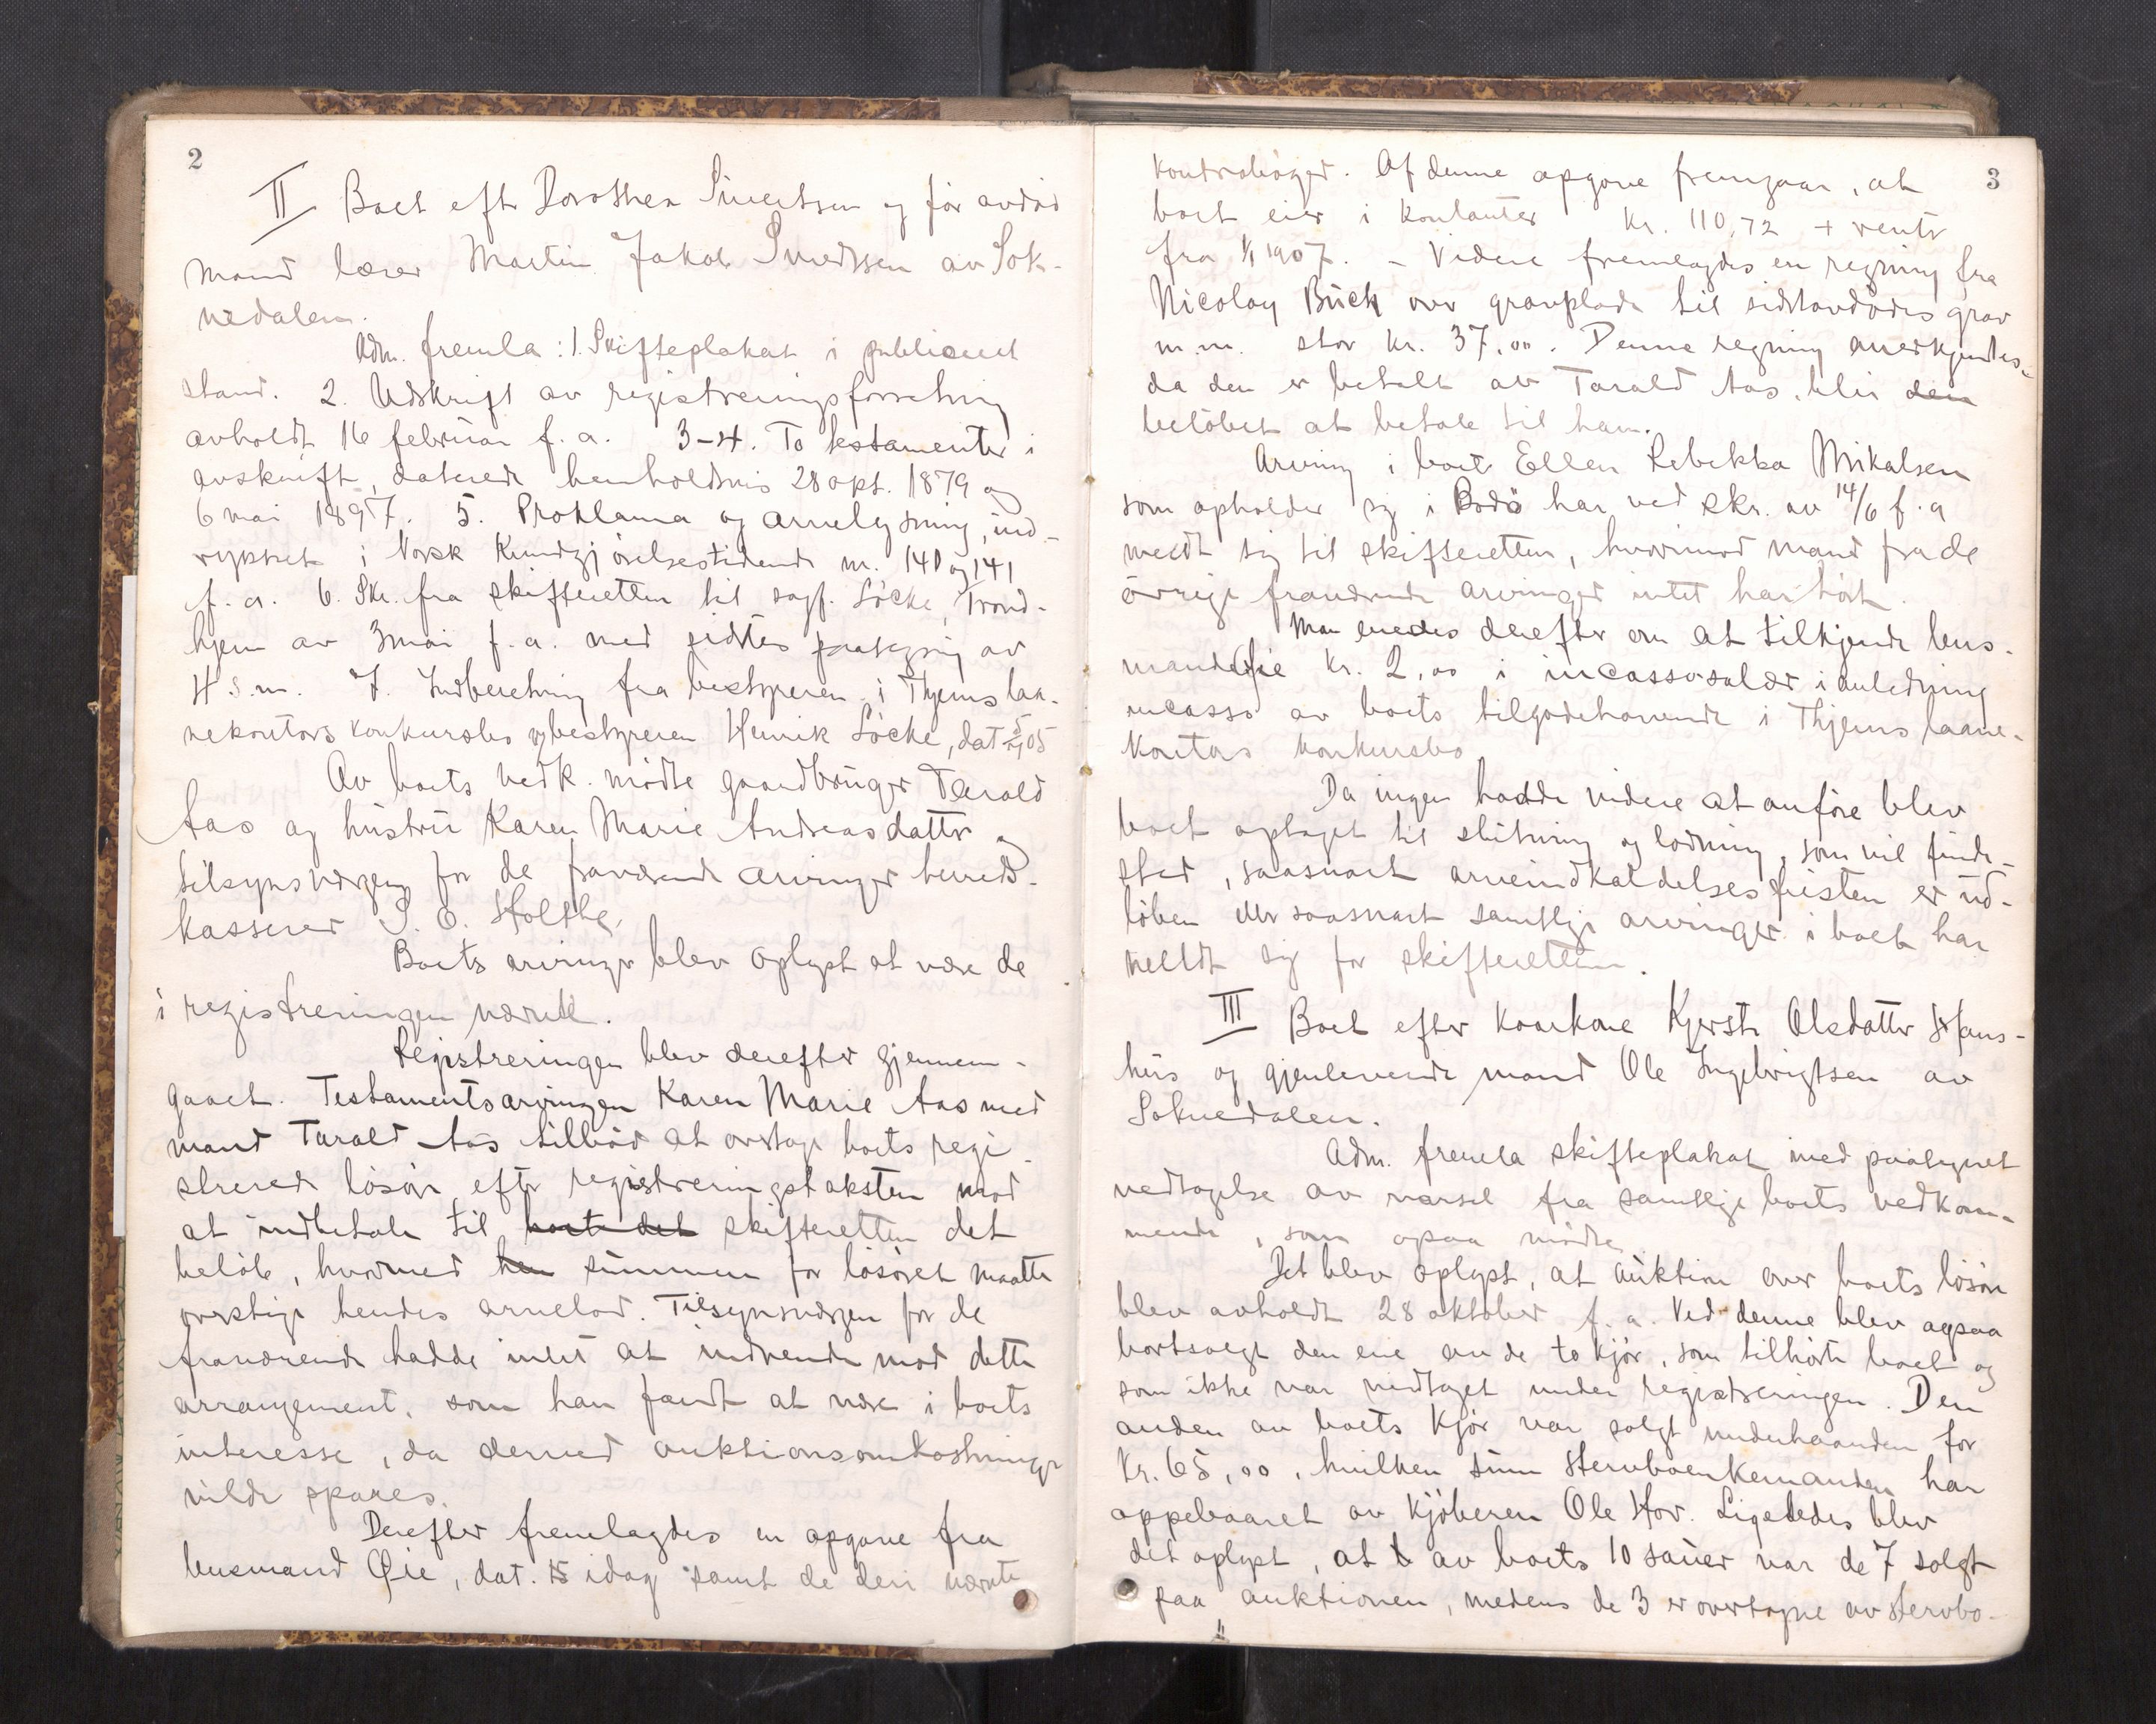 2
II Boet eft Dorothea Sivertsen og før avdød
mand lærer Martin Jakob Sivertsen av Sok-
nedalen.
Adm. fremla: 1. Skifteplakat i publiceret
stand. 2. Udskrift av registreringsforretning
avholdt 16 februar f. a. 3-4. To testamenter i
avskrift, daterede henholdsvis 28 1879 og
6 mai 1897. 5. Proklama og arvelysning, ind-
rykket i Norsk Kundgjörelsestidende nr. 140 og 141
f. a. 6. Skr. fra skifteretten til sagf. Löcke, Trond-
hjem av 3 mai f. a. med sidstes paategning av
4 s. m. 7. Indberetning fra bestyreren i Thjems laa-
nekontors konkursbo bestyreren Henrik Löcke, dat
Av boets vedk. mödte gaardbruger Tarald
Aas og hustru Karen Marie Andreasdatter og
tilsynsværgen for de fraværende arvinger herreds-
kasserer J. E. Holthe.
Boets arvinger blev oplyst at være de
i registreringen nævnte.
Registreringen blev derefter gjennem-
gaaet. Testamentsarvingen Karen Marie Aas med
mand Tarald Aas tilböd at overtage boets regi-
strerede lösöre efter registreringstaksten mod
at indbetale til boet det skifteretten det
belöb, hvormed hen summen for lösöret maatte
overstige hendes arvelod. Tilsynsværgen for de
fraværende hadde intet at indvende mod dette
arrangement, som han fandt at være i boets
interesse, da derved auktionsomkostninger
vilde spares.
Derefter fremlagdes en opgave fra
lensmand Øie, dat. idag samt de deri nævnte
3
kontraböger. Af denne opgave fremgaar, at
boet eier i kontanter kr. 110,72 + renter
fra 1/1 1907. – Videre fremlagdes en regning fra
Nicolay Buch over gravplade til sidstavdødes grav
m.m. stor kr. 37,00. Denne regning anerkjendtes,
da den er betalt av Tarald Aas, blir den
belöbet at betale til ham.
Arving i boet Ellen Rebekka Mikalsen
som opholder sig i Bodö har ved skr. av 14/6 f. a
meldt sig til skifteretten, hvorimod mand fra de
övrige fraværende arvinger intet har hört.
Man enedes derefter om at tilkjende lens-
mand Øie kr. 2,00 i incassosalær i anledning
incasso av boets tilgodehavende i Thjems laane-
kontors konkursbo
Da ingen hadde videre at anföre blev
boet optaget til slutning og lodning, som vil finde
sted, saasnart arveindkaldelsesfristen er ud-
löben eller saasnart samtlige arvinger i boet har
meldt sig for skifteretten.
III Boet efter kaarkone Kjersti Olsdatter Hans-
hus og gjenlevende mand Ole Ingebrigtsen av
Soknedalen.
Adm. fremla skifteplakat med paategnet
vedtagelse av varsel fra samtlige boets vedkom-
mende, som ogsaa mödte.
Det blev oplyst, at auktion over boets lösöre
blev avholdt 28 oktober f. a. Ved denne blev ogsaa
bortsolgt den ene av de to kjör, som tilhörte boet og
som ikke var medtaget under registreringen. Den
anden av boets kjör var solgt underhaanden for
kr. 65,00, hvilken sum stervboenkemanden har
oppebaaret av kjöberen Ole Hov. Ligeledes blev
det oplyst, at av boets 10 sauer var de 7 solgt
paa auktionen, medens de 3 er overtagne av stervbo-